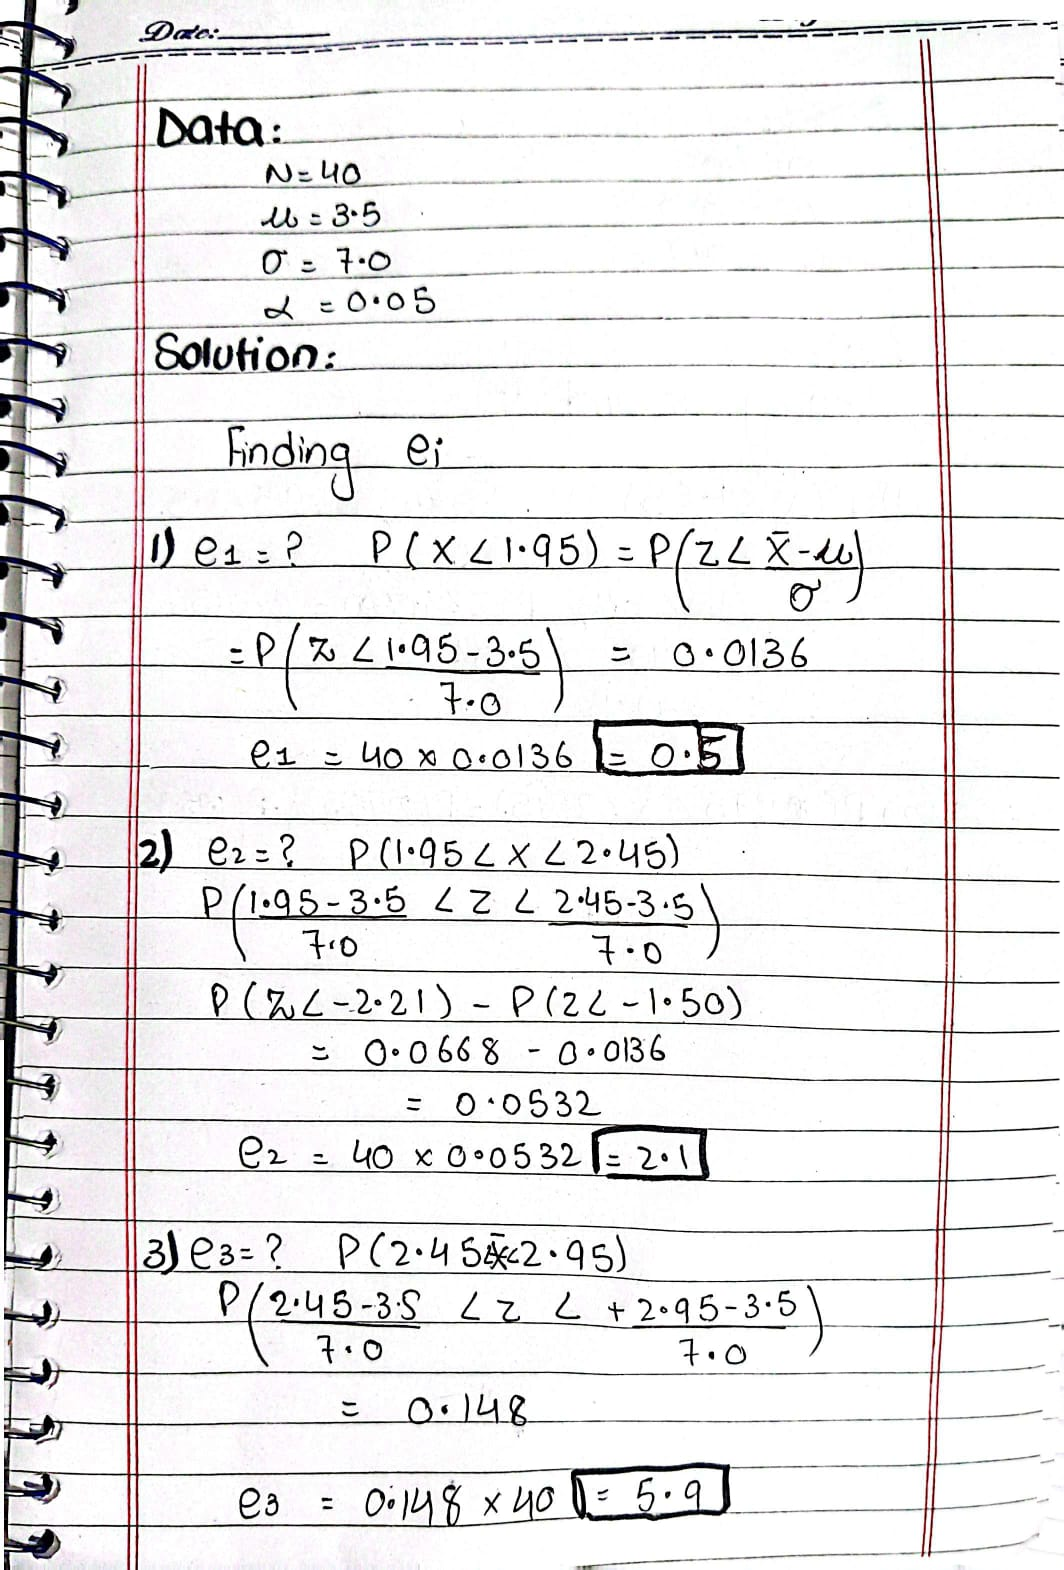 Date:
Data:
N=40
μ = 3.5
σ = 7.0
α = 0.05
Solution:
Finding ei
1) e1 = ? P(X<1.95) = P(Z< x̄-μ/σ)
=P(z <1.95-3.5/7.0) = 0.0136
e1 = 40 x 0.0136 = 0.5
2) e2=? P(1.95<X<2.45)
P(1.95-3.5/7.0 <Z< 2.45-3.5/7.0)
P(z<-2.21) - P(z<-1.50)
= 0.0668 - 0.0136
= 0.0532
e2 = 40 x 0.0532 = 2.1
3) e3=? P(2.45<x<2.95)
P(2.45-3.5/7.0 <z< +2.95-3.5/7.0)
= 0.148
e3 = 0.148 x 40 = 5.9